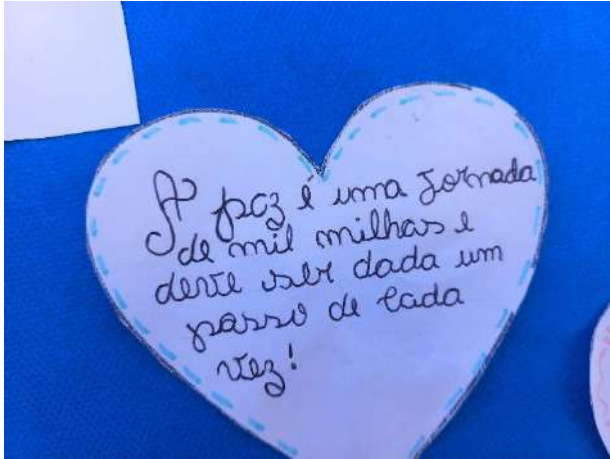 A paz é uma jornada
de mil milhas e
deve ser dada um
passo de cada
vez!